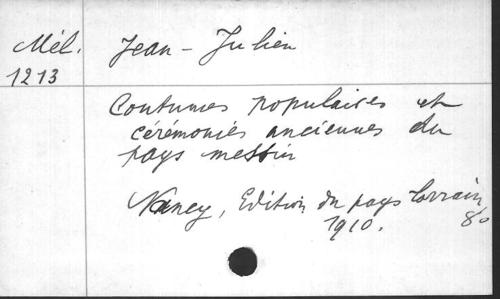 Mél. Jean-Julien
1213
Coutumes populaires et
cérémonies anciennes du
pays messin
Nancy, Edition du pays lorrain,
1910. 8o